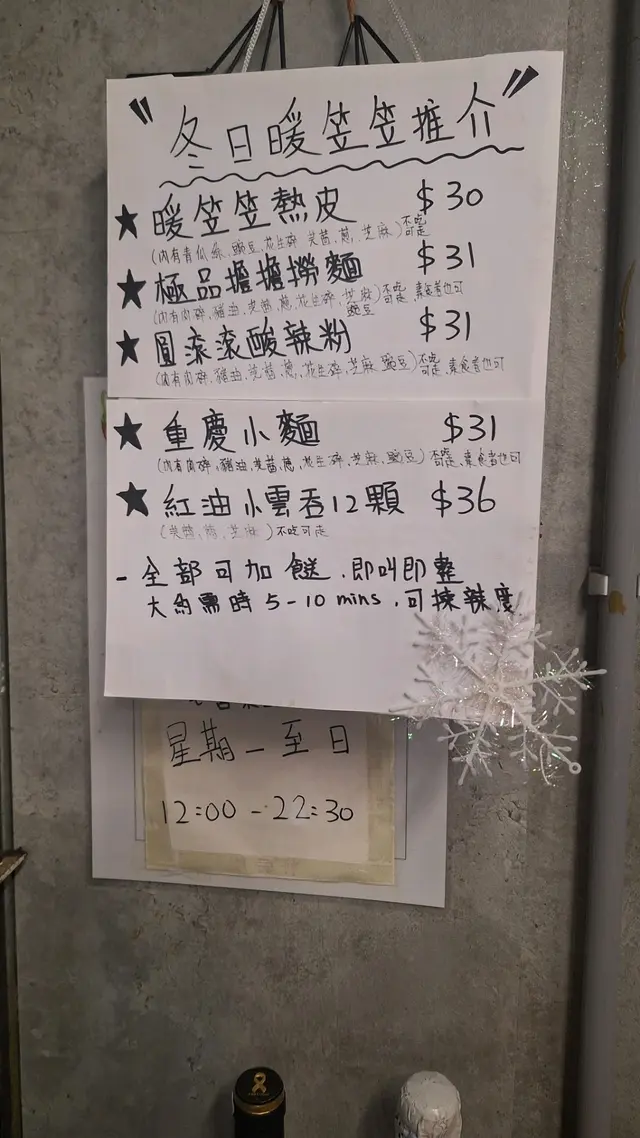 "冬日暖笠笠推介"
★ 暖笠笠熱皮 $30
(內有青瓜絲,豌豆,花生碎 芫茜,蔥,芝麻)不吃可走
★ 極品擔擔撈麵 $31
(內有肉碎,豬油,芫茜,蔥,花生碎,芝麻 豌豆)不吃可走,素食者也可
★ 圓滾滾酸辣粉 $31
(內有肉碎,豬油,芫茜,蔥,花生碎,芝麻 豌豆)不吃可走,素食者也可
★ 重慶小麵 $31
(內有肉碎,豬油,芫茜,蔥,花生碎,芝麻,豌豆)不吃可走,素食者也可
★ 紅油小雲吞12顆 $36
(芫茜,蔥,芝麻)不吃可走
- 全部可加餸,即叫即整
大約需時 5-10 mins,可揀辣度
星期一至日
12:00 - 22:30